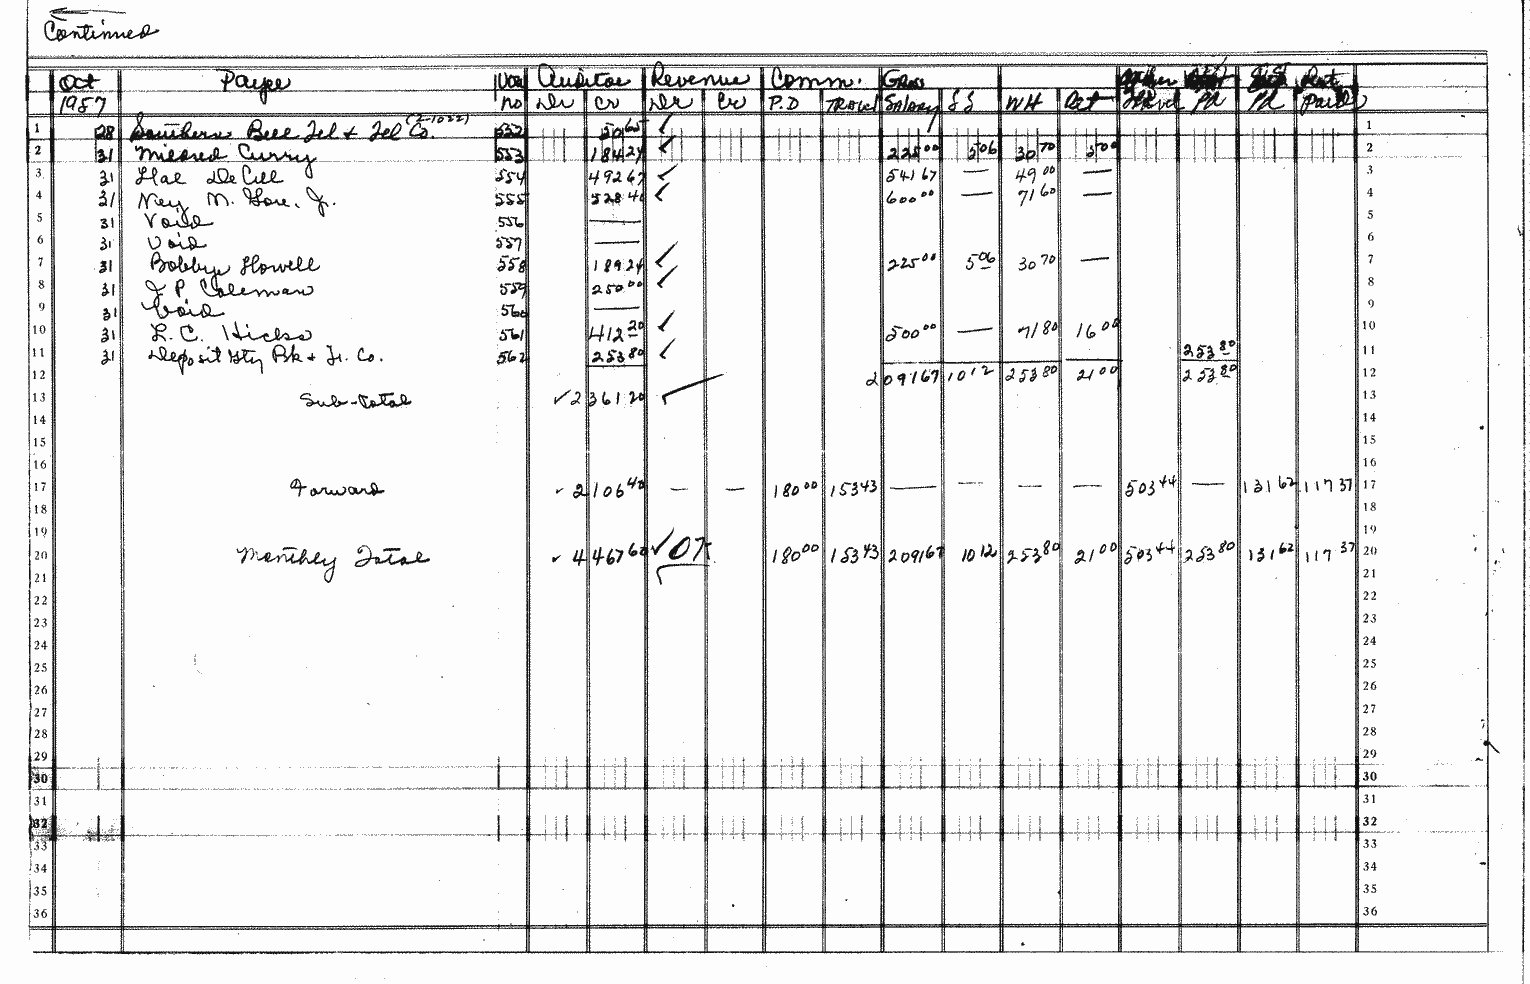 Continued
Oct Payee Vou Auditor Revenue Comm. Gross Other Rent
1957 no Dr Cr Dr Cr P.D Travel Salary SS WH Ret Travel Pd Pd Paid
1 28 Southern Bell Tel & Tel Co. (2-1022) 552 50 65 ✓ 1
2 31 Mildred Curry 553 184 24 ✓ 225 00 5 06 30 70 5 00 2
3 31 Hal DeCell 554 492 67 ✓ 541 67 — 49 00 — 3
4 31 Ney M. Gore, Jr. 555 528 40 ✓ 600 00 — 71 60 — 4
5 31 Void 556 — 5
6 31 Void 557 — 6
7 31 Bobbye Howell 558 189 24 ✓ 225 00 5 06 30 70 — 7
8 31 J P Coleman 559 250 00 ✓ 8
9 31 Void 560 — 9
10 31 L. C. Hicks 561 412 20 ✓ 500 00 — 71 80 16 00 10
11 31 Deposit Gty Bk & Tr. Co. 562 253 80 ✓ 253 80 11
12 2091 67 10 12 253 80 21 00 253 80 12
13 Sub-total ✓ 2 361 20 ✓ 13
14 14
15 15
16 16
17 Forward ✓ 2 106 40 — — 180 00 153 43 — — — — 503 44 — 131 62 117 37 17
18 18
19 19
20 Monthly Total ✓ 4 467 60 ✓ OK 180 00 153 43 2091 67 10 12 253 80 21 00 503 44 253 80 131 62 117 37 20
21 21
22 22
23 23
24 24
25 25
26 26
27 27
28 28
29 29
30 30
31 31
32 32
33 33
34 34
35 35
36 36